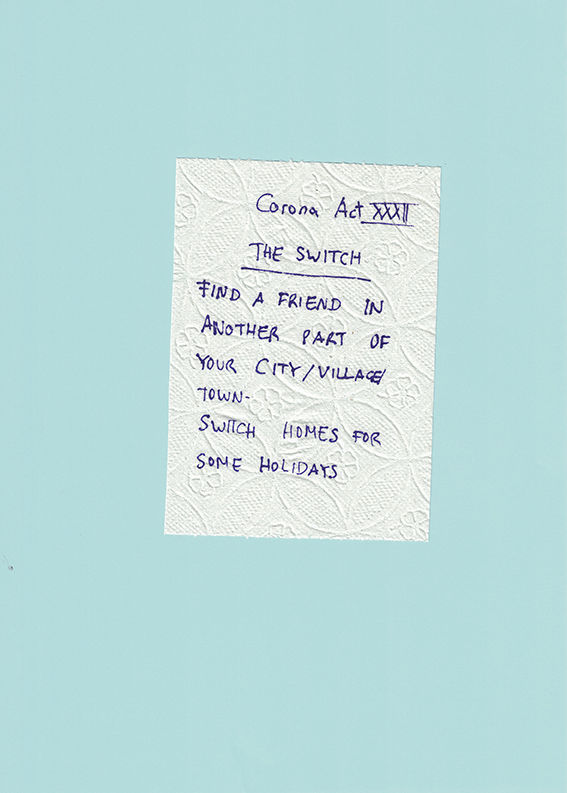 Corona Act XXXII
THE SWITCH
FIND A FRIEND IN
ANOTHER PART OF
YOUR CITY/VILLAGE/
TOWN-
SWITCH HOMES FOR
SOME HOLIDAYS